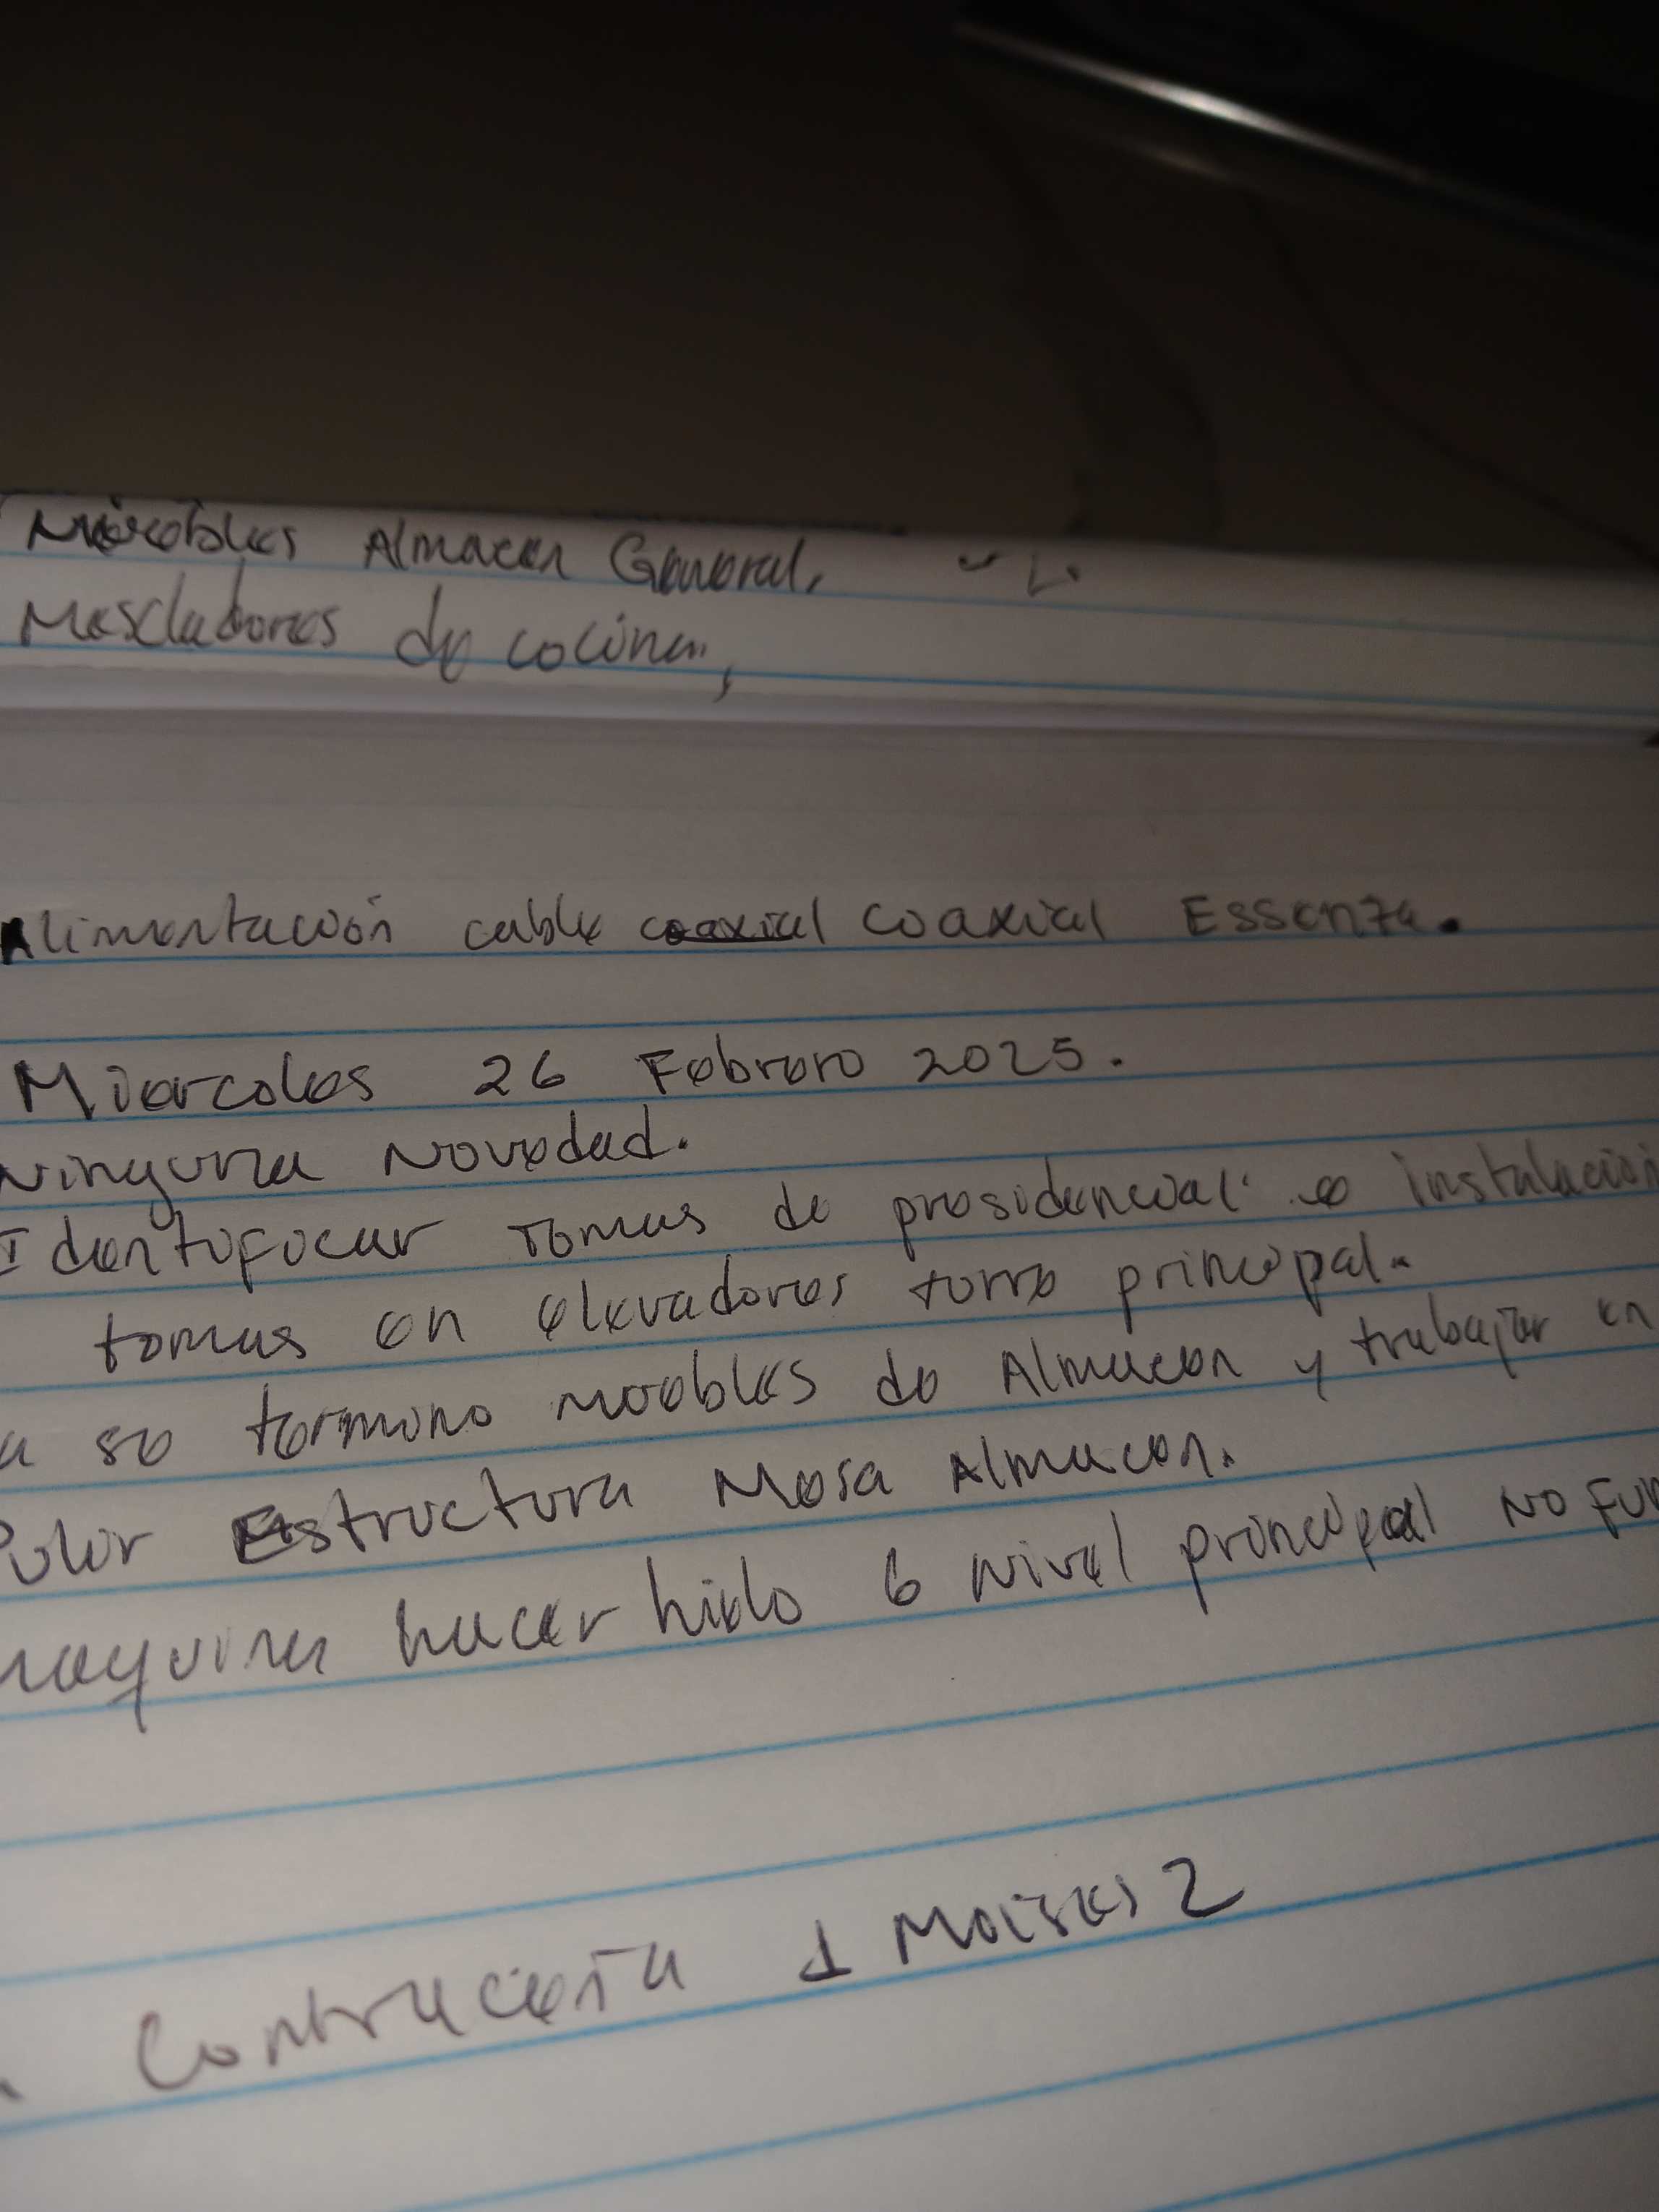 Almacen General.
Mescladores de cocina,
Alimentación cable coaxial coaxial Essenza.
Miercoles 26 Febrero 2025.
Ninguna Novedad.
Identificar tomas de presidencial e instalación
tomas en elevadores torre principal.
a se termino moobles de Almacen y trabajar en
Pulir Estructura Mesa Almacen.
maquina hacer hielo 6 nivel principal No Fun
Contraceña 1 Moises 2